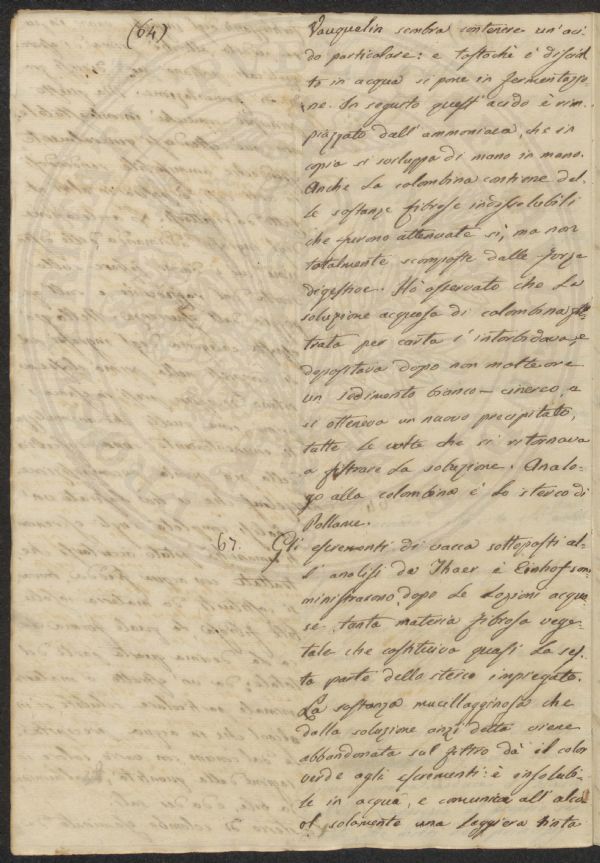 (64)
Vauquelin sembra contenere un'aci-
do particolare: e tostochè è disciol-
to in acqua si pone in fermentazio-
ne. In seguito quest'acido è rim-
piazzato dall'ammoniaca, che in
copia si sviluppa di mano in mano.
Anche la colombina contiene del-
le sostanze fibrose indissolubili
che furono attenuate sì, ma non
totalmente scomposte dalle forze
digestive. Ho osservato che la
soluzione acquosa di colombina fil-
trata per carta s'intorbidava, e
depositava dopo non molte ore
un sedimento bianco-cinereo, e
si otteneva un nuovo precipitato,
tutte le volte che si ritornava
a filtrare la soluzione. Analo-
go alla colombina è lo sterco di
Pollame.
67. Gli escrementi di vacca sottoposti al-
l'analisi da Thaer e Einhof som-
ministrarono dopo le lozioni acquo-
se tanta materia fibrosa vege-
tale che costituiva quasi la ses-
ta parte dello sterco impiegato.
La sostanza mucillagginosa che
dalla soluzione anzi detta viene
abbandonata sul filtro dà il color
verde agli escrementi: è insolubi-
le in acqua, e comunica all'alco-
ol solamente una leggiera tinta